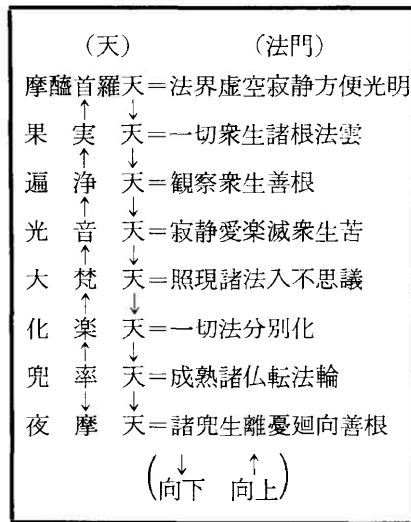 （天）　（法門）
摩醯首羅天＝法界虚空寂静方便光明
↑　↓
果実天＝一切衆生諸根法雲
↑　↓
遍浄天＝観察衆生善根
↑　↓
光音天＝寂静愛楽滅衆生苦
↑　↓
大梵天＝照現諸法入不思議
↑　↓
化楽天＝一切法分別化
↑　↓
兜率天＝成熟諸仏転法輪
↓　↓
夜摩天＝諸兜生離憂廻向善根
（↓　↑
向下　向上）